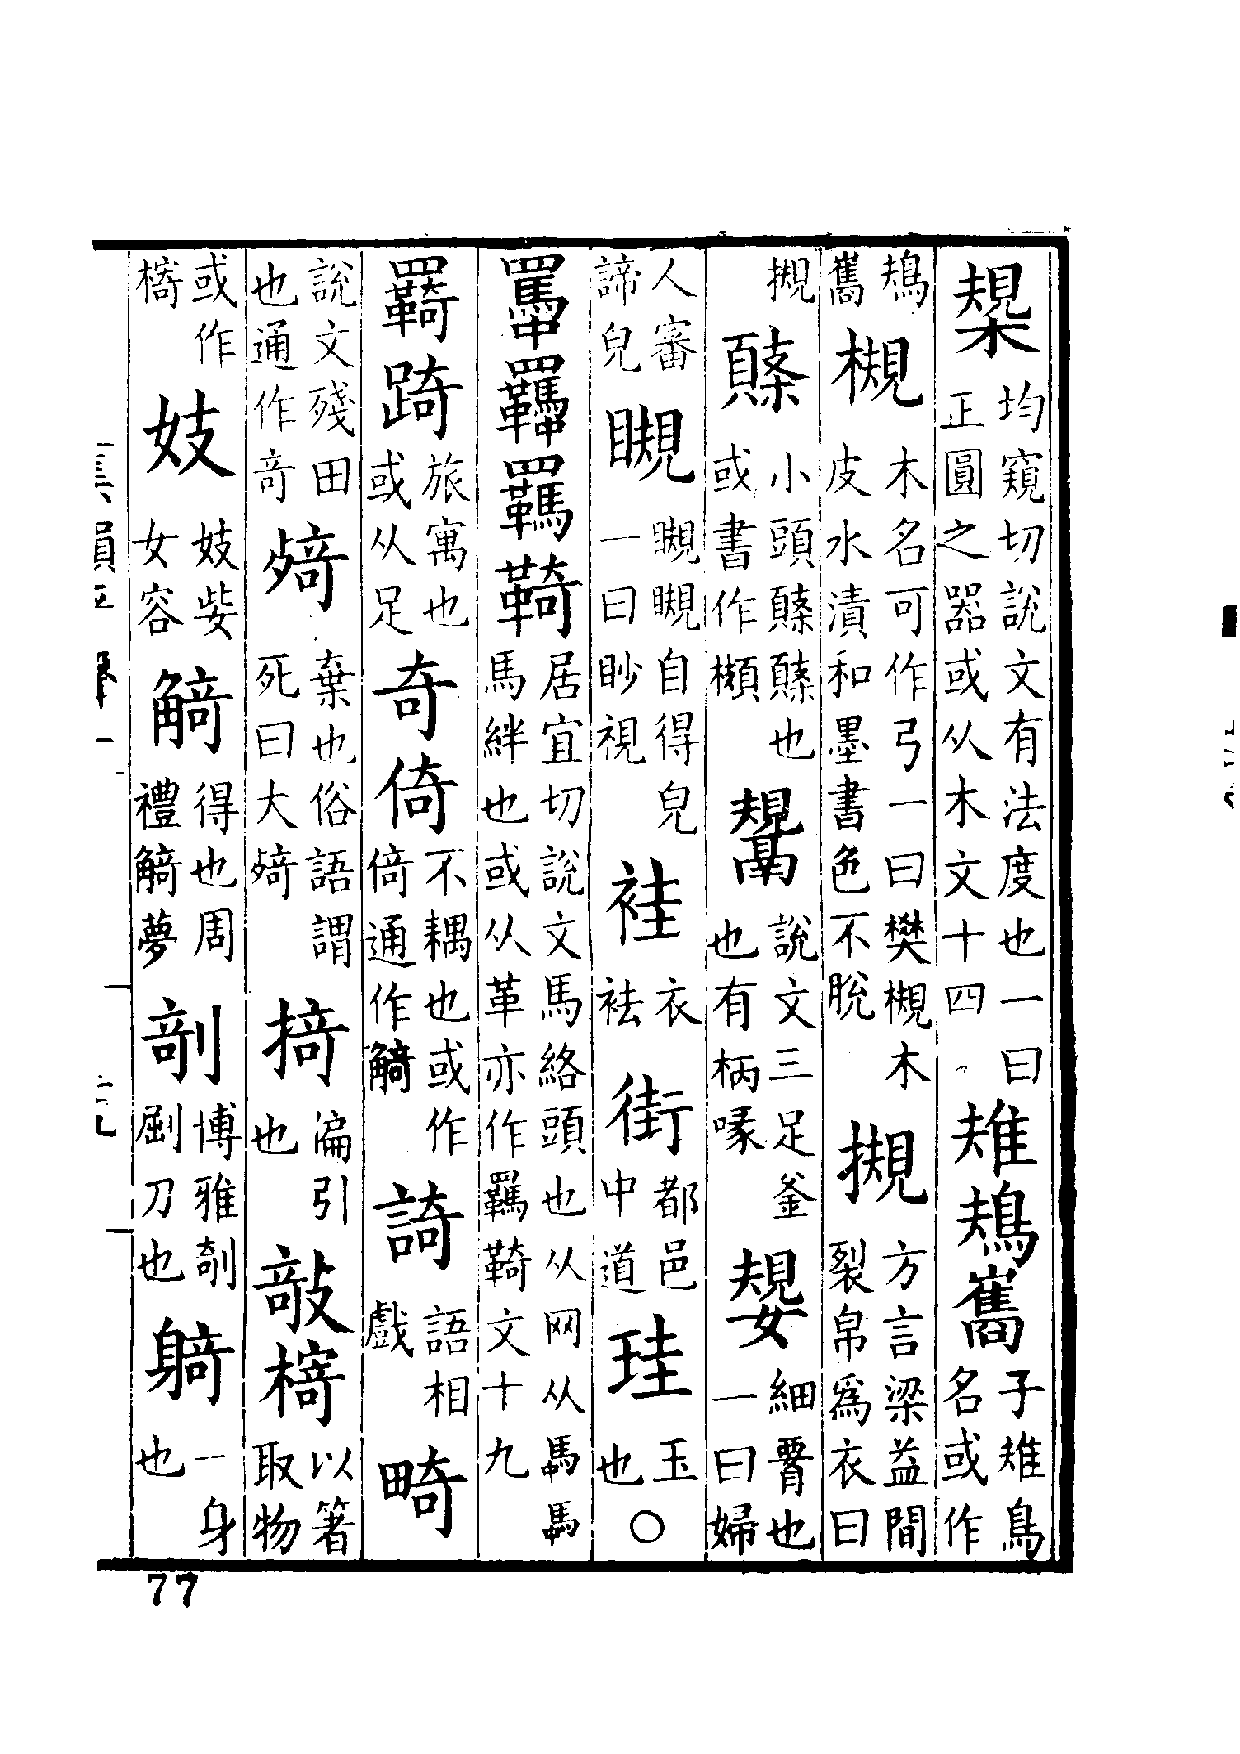 槼均窺切說文有法度也一曰正圓之器或从木文十四䧳鳺巂子䧳鳥名或作
鳺巂槻木名可作弓一曰樊槻木皮水漬和墨書色不脫摫方言梁益間裂帛爲衣曰
摫䫌小頭䫌䫌也或書作㰎鬹說文三足釜也有柄喙嫢細𦝫也一曰婦
人審諦皃瞡瞡瞡自得皃一曰眇視袿衣袪街都邑中道珪玉也○
羈羈羈䩭居宜切說文馬絡頭也从网从馽馽馬絆也或从革亦作羈䩭文十九
羇踦旅寓也或从足奇倚不耦也或作倚通作觭䛴語相戲畸
說文殘田也通作奇㱦棄也俗語謂死曰大㱦掎偏引也敧椅以箸取物
或作㯕妓妓姕女容觭得也周禮觭夢剞博雅剞劂刀也躸一身也
77